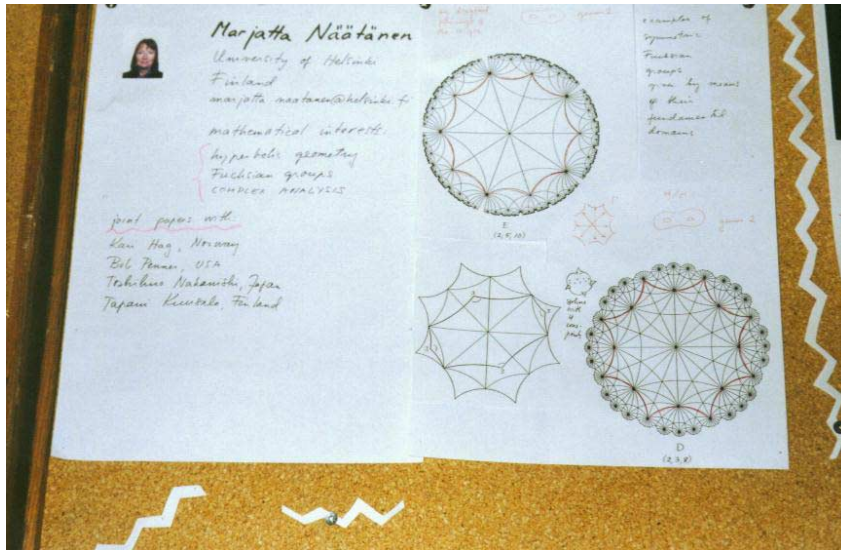 Marjatta Näätänen
University of Helsinki
Finland
marjatta.naatanen@helsinki.fi
mathematical interests:
hyperbolic geometry
Fuchsian groups
COMPLEX ANALYSIS
joint papers with:
Kari Hag, Norway
Bob Penner, USA
Toshihiro Nakanishi, Japan
Tapani Kuusalo, Finland
genus 2
examples of
symmetric
Fuchsian
groups
given by means
of their
fundamental
domains
E
(2,5,10)
genus 2
sphere
with
4
D
(2,3,8)